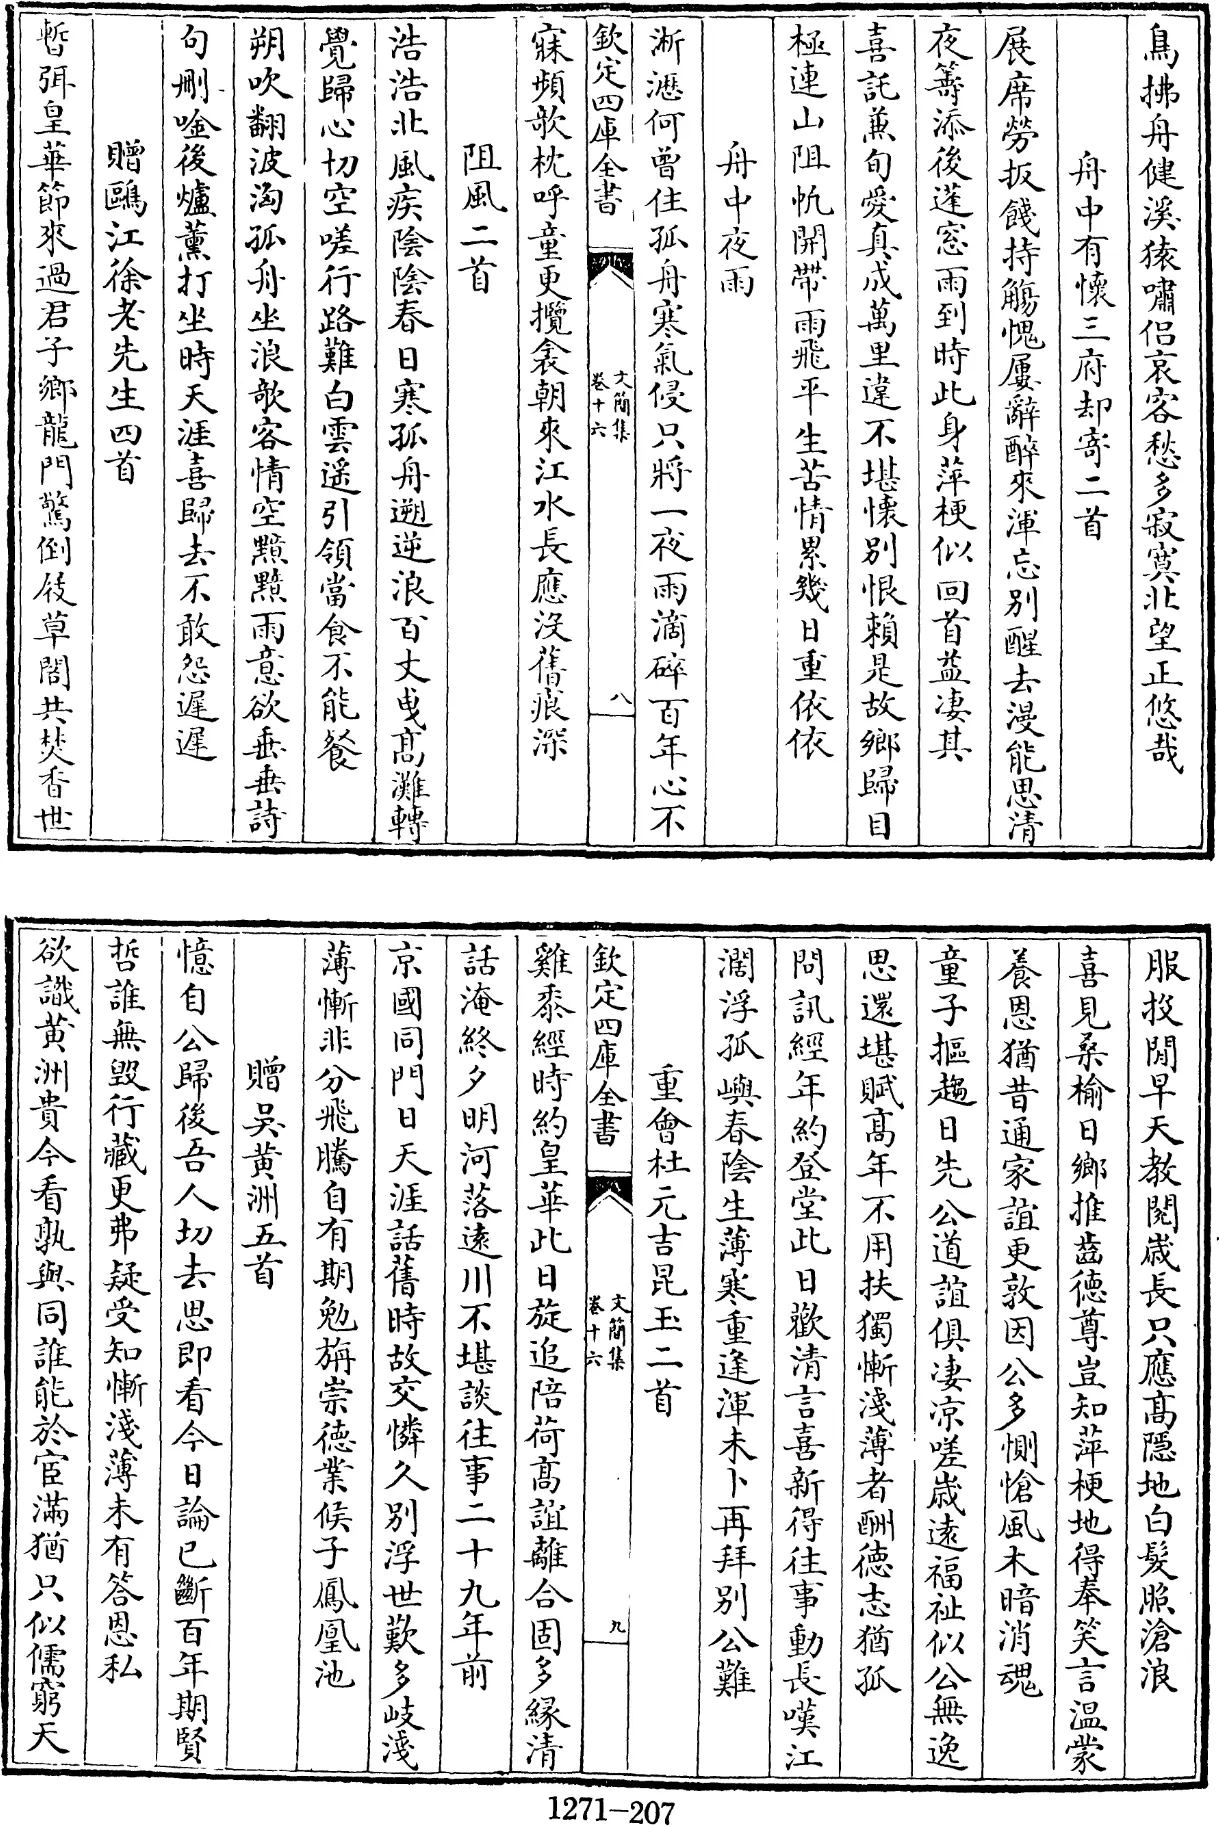 鳥拂舟健溪猿嘯侣哀客愁多寂寞北望正悠哉
舟中有懷三府却寄二首
展席勞扳餞持觴愧屢辭醉來渾忘别醒去漫能思清
夜籌添後蓬窓雨到時此身萍梗似回首益凄其
喜託兼旬愛真成萬里違不堪懷别恨頼是故鄉歸目
極連山阻帆開帶雨飛平生苦情累幾日重依依
舟中夜雨
淅瀝何曾住孤舟寒氣侵只將一夜雨滴碎百年心不
欽定四庫全書
文簡集
卷十六
八
寐頻欹枕呼童更攬衾朝來江水長應沒舊痕深
阻風二首
浩浩北風疾陰陰春日寒孤舟遡逆浪百丈曵髙灘轉
覺歸心切空嗟行路難白雲遥引領當食不能餐
朔吹翻波洶孤舟坐浪欹客情空黯黯雨意欲垂垂詩
句刪唫後爐薰打坐時天涯喜歸去不敢怨遲遲
贈鷗江徐老先生四首
暫弭皇華節來過君子鄉龍門驚倒屐草閣共焚香世
服投閒早天教閱歳長只應髙隱地白髮照滄浪
喜見桑榆日鄉推齒德尊豈知萍梗地得奉笑言温蒙
養恩猶昔通家誼更敦因公多惻愴風木暗消魂
童子摳趨日先公道誼俱凄凉嗟歳逺福祉似公無逸
思還堪賦髙年不用扶獨慚淺薄者酬徳志猶孤
問訊經年約登堂此日歡清言喜新得往事動長嘆江
濶浮孤嶼春陰生薄寒重逢渾未卜再拜别公難
重會杜元吉昆玉二首
欽定四庫全書
文簡集
卷十六
九
雞黍經時約皇華此日旋追陪荷髙誼離合固多縁清
話淹終夕明河落逺川不堪談往事二十九年前
京國同門日天涯話舊時故交憐久别浮世歎多岐淺
薄慚非分飛騰自有期勉旃崇徳業候子鳳凰池
贈吴黄洲五首
憶自公歸後吾人切去思即看今日論已斷百年期賢
哲誰無毁行藏更弗疑受知慚淺薄未有答恩私
欲識黄洲貴今看孰與同誰能於宦滿猶只似儒窮天
1271-207